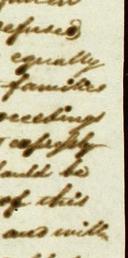 refused
equally
families
roceedings
expressly
hould be
of this
and with